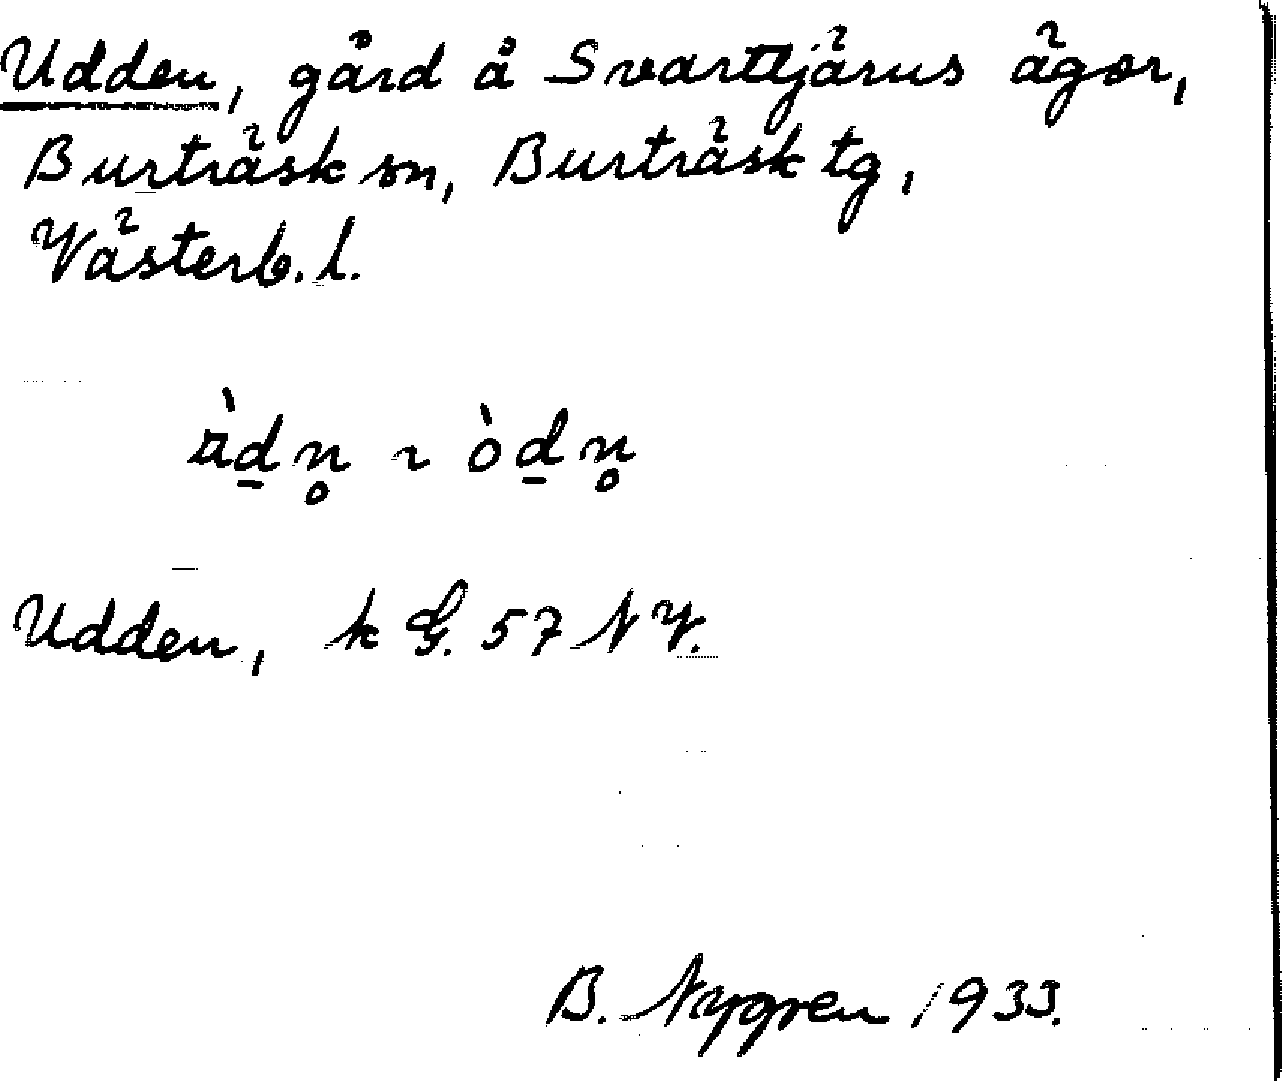 Udden, gård å Svarttjärns ägor,
Burträsk sn, Burträsk tg,
Västerb. l.
ò̤d̲n̥ ~ òd̲n̥
Udden, k G. 57 NV.
B. Nygren 1933.